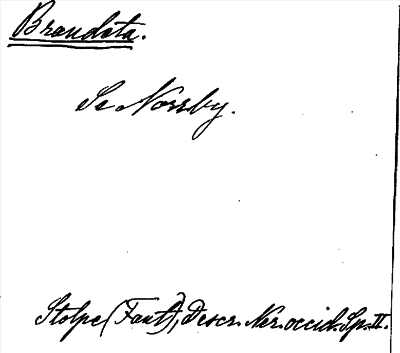 Brandsta.
Se Norrby.
Stolpe (Fant), Descr. Ner. occid. Sp. II.